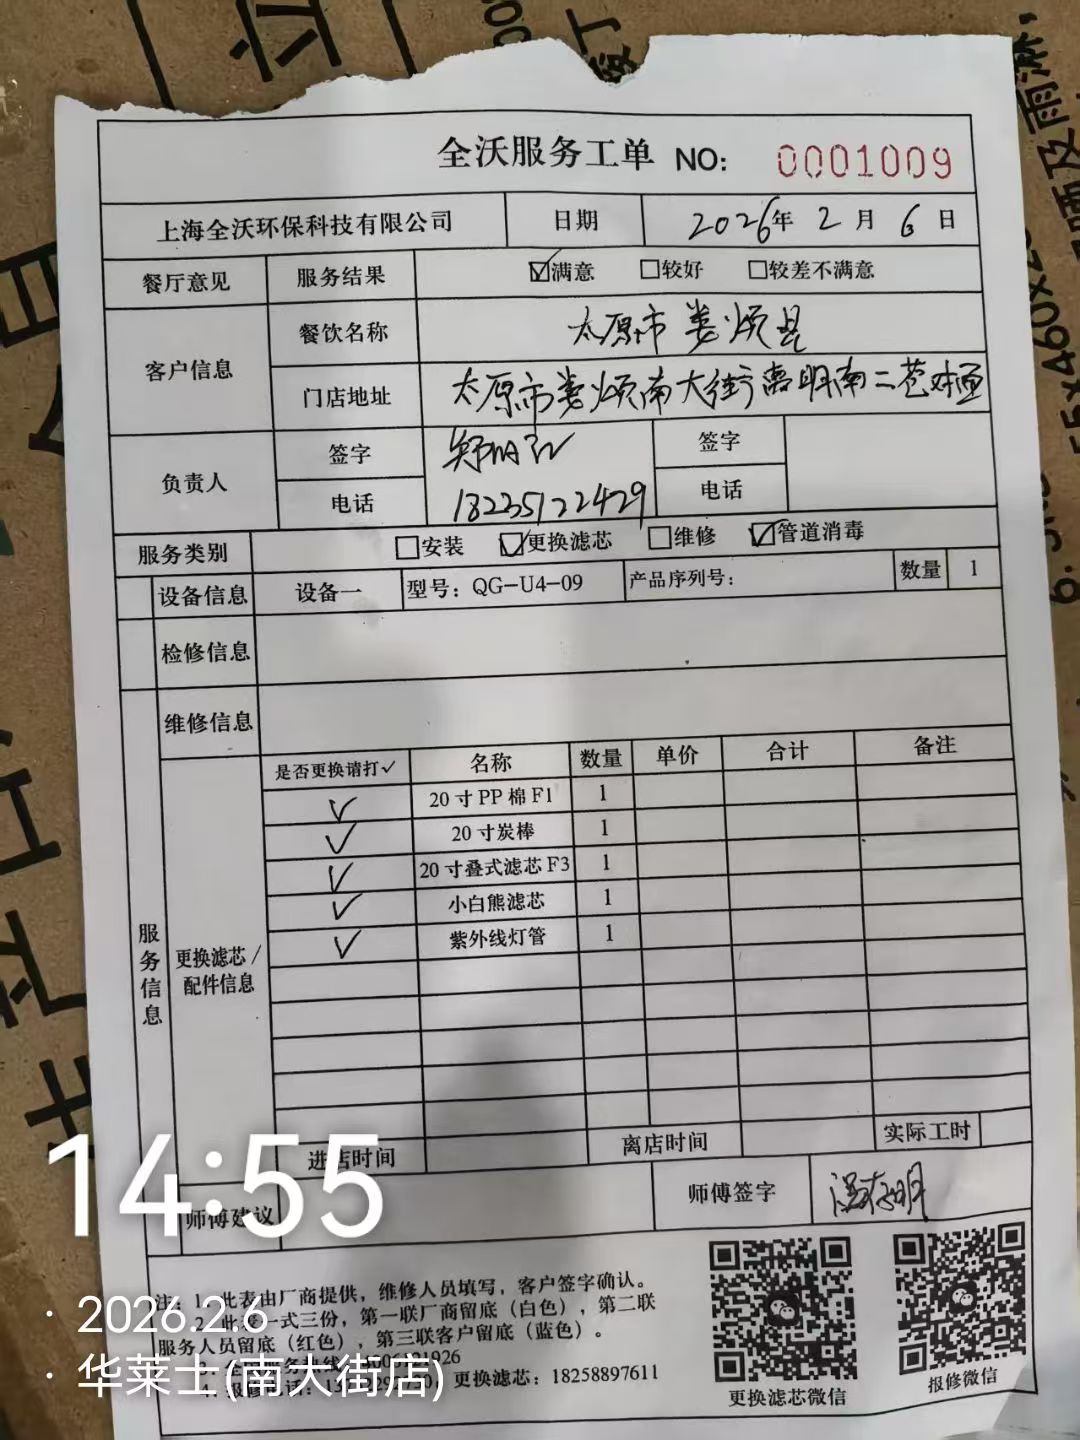 全沃服务工单 NO: 0001009
上海全沃环保科技有限公司 日期 2026年 2 月 6 日
餐厅意见 服务结果 ☑满意 □较好 □较差不满意
客户信息 餐饮名称 太原市娄烦县
门店地址 太原市娄烦南大街 明南二 对面
负责人 签字 签字
电话 18235122429 电话
服务类别 □安装 ☑更换滤芯 □维修 ☑管道消毒
设备信息 设备一 型号: QG-U4-09 产品序列号: 数量 1
检修信息
维修信息
服务信息
更换滤芯/配件信息
是否更换请打✓ 名称 数量 单价 合计 备注
✓ 20寸PP棉F1 1
✓ 20寸炭棒 1
✓ 20寸叠式滤芯F3 1
✓ 小白熊滤芯 1
✓ 紫外线灯管 1
进店时间 离店时间 实际工时
师傅建议 师傅签字
注: 1. 此表由厂商提供，维修人员填写，客户签字确认。
2. 此表一式三份，第一联厂商留底（白色），第二联
服务人员留底（红色），第三联客户留底（蓝色）。
更换滤芯: 18258897611
更换滤芯微信 报修微信
14:55
· 2026.2.6
· 华莱士(南大街店)